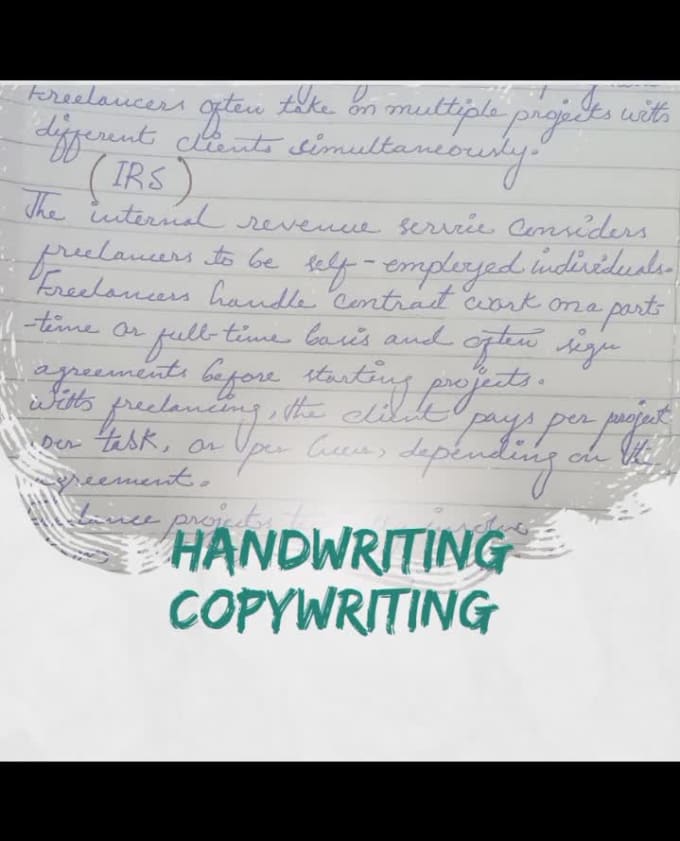 Freelancers often take on multiple projects with
different clients simultaneously.
(IRS)
The internal revenue service considers
freelancers to be self-employed individuals.
Freelancers handle contract work on a part-
-time or full-time basis and often sign
agreements before starting projects.
With freelancing, the client pays per project
per task, or per hour, depending on the
agreement.
projects involve
HANDWRITING
COPYWRITING